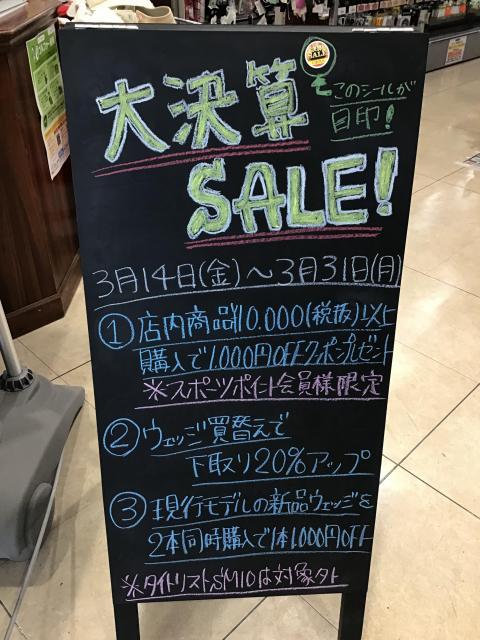 大決算
SALE
このシールが
目印!
SALE!
3月14日(金)〜3月31日(月)
① 店内商品¥10.000(税抜)以上
購入で1,000円OFFクーポンプレゼント
※スポーツポイント会員様限定
② ウェッジ買替えで
下取り20%アップ
③ 現行モデルの新品ウェッジを
2本同時購入で1本1,000円OFF
※タイトリストSM10は対象外